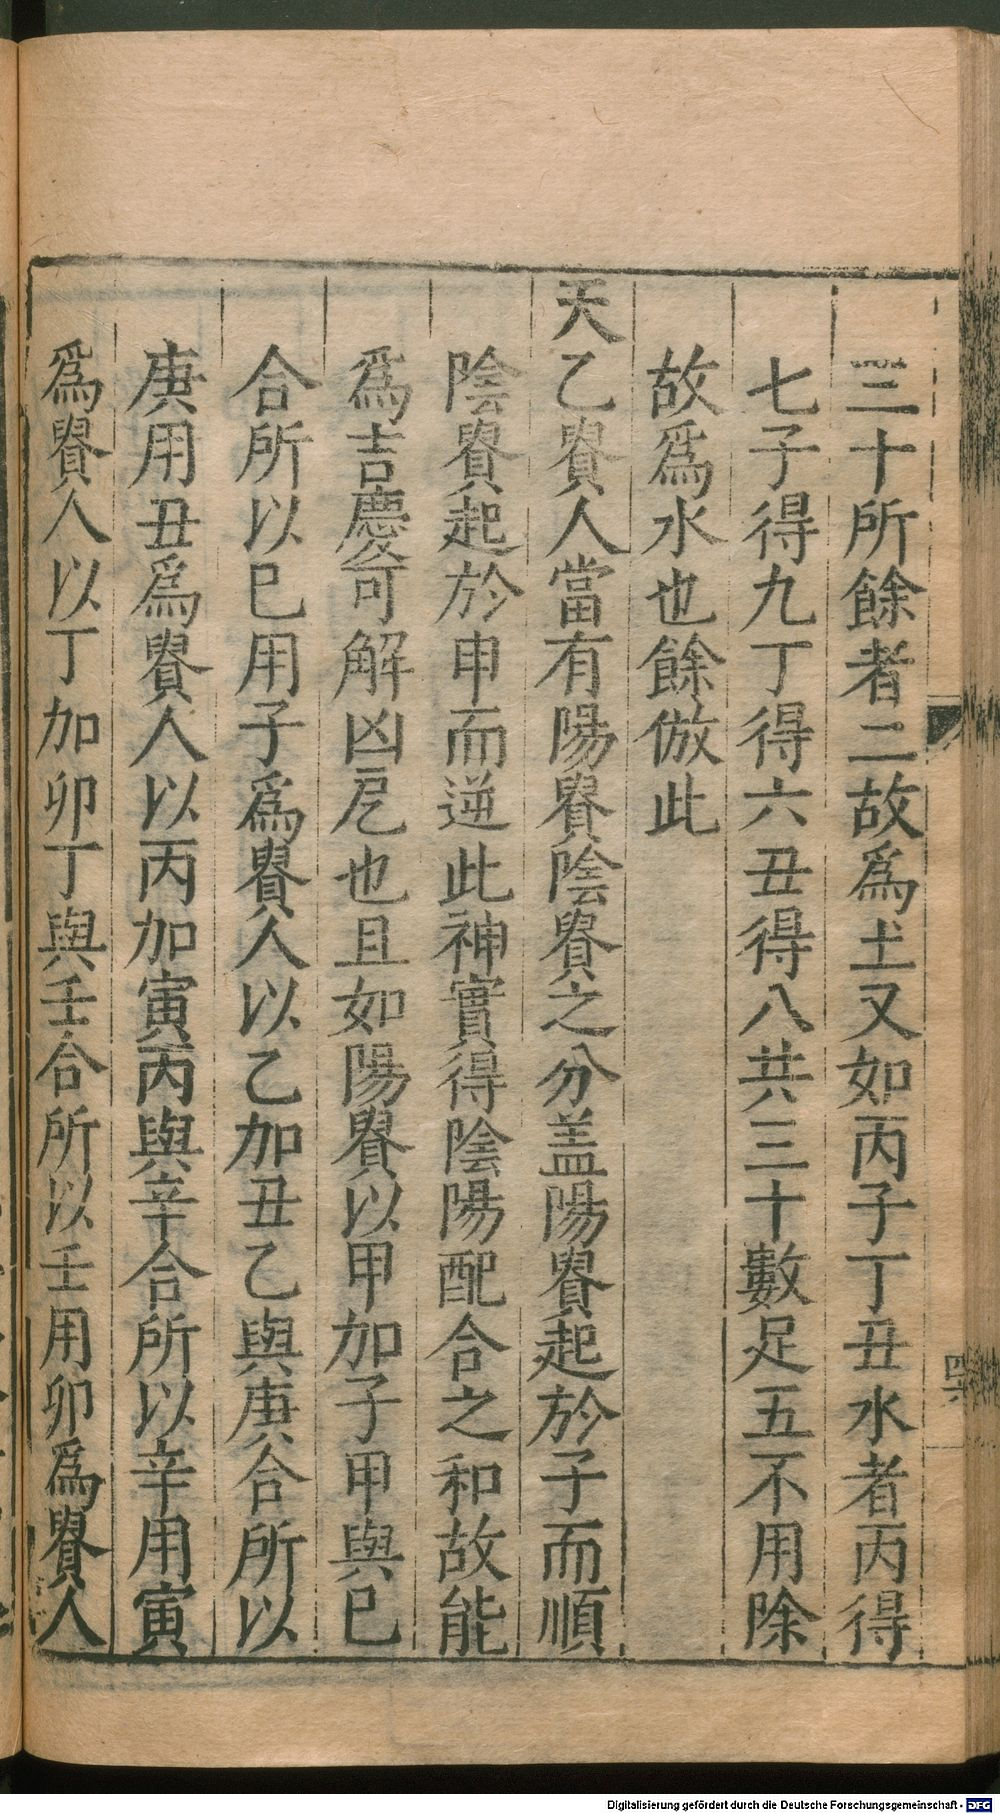 三十所餘者二故爲土又如丙子丁丑水者丙得
七子得九丁得六丑得八共三十數足五不用除
故爲水也餘倣此
天乙貴人當有陽貴陰貴之分盖陽貴起於子而順
陰貴起於申而逆此神實得陰陽配合之和故能
爲吉慶可解凶厄也且如陽貴以甲加子甲與巳
合所以巳用子爲貴人以乙加丑乙與庚合所以
庚用丑爲貴人以丙加寅丙與辛合所以辛用寅
爲貴人以丁加卯丁與壬合所以壬用卯爲貴人
Digitalisierung gefördert durch die Deutsche Forschungsgemeinschaft - DFG